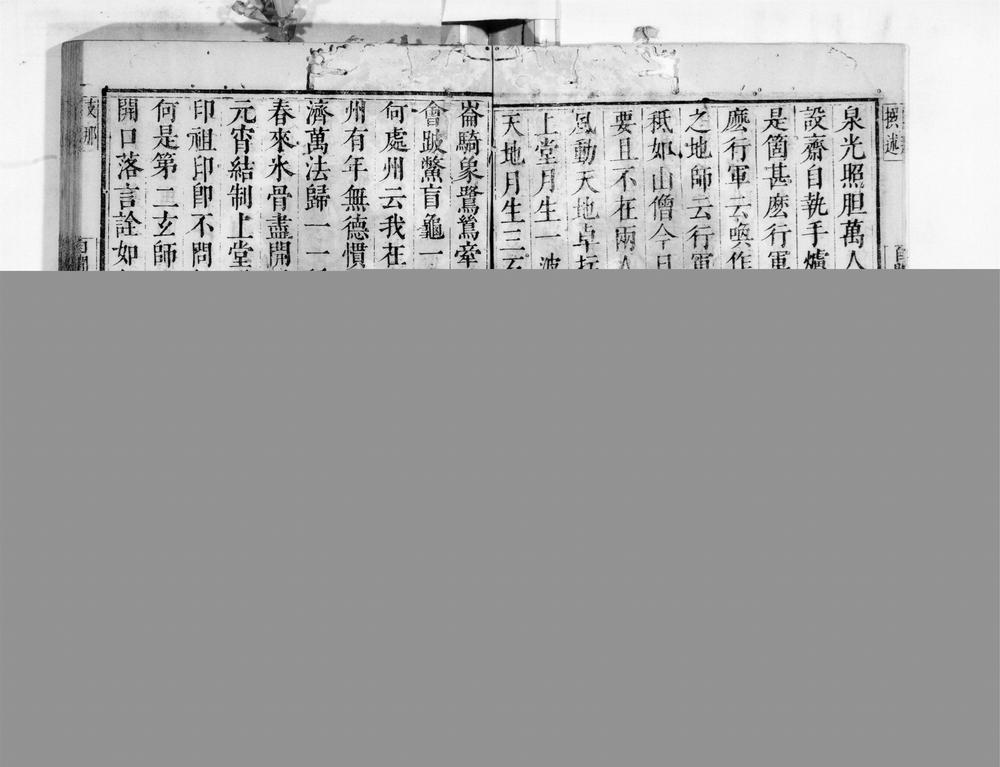 撰述
泉光照胆萬人
設齋自執手爐
是箇甚麽行軍
麽行軍云喚作
之地師云行軍
秖如山僧今日
要且不在兩人
風動天地卓拄
上堂月生一波
天地月生三
崙騎象鷺鷥牽
會跛鱉盲龜一
何處州云我在
州有年無德慣
濟萬法歸一一
春來氷骨盡開
元宵結制上堂
印祖印卽不問
何是第二玄師
開口落言詮如
支那